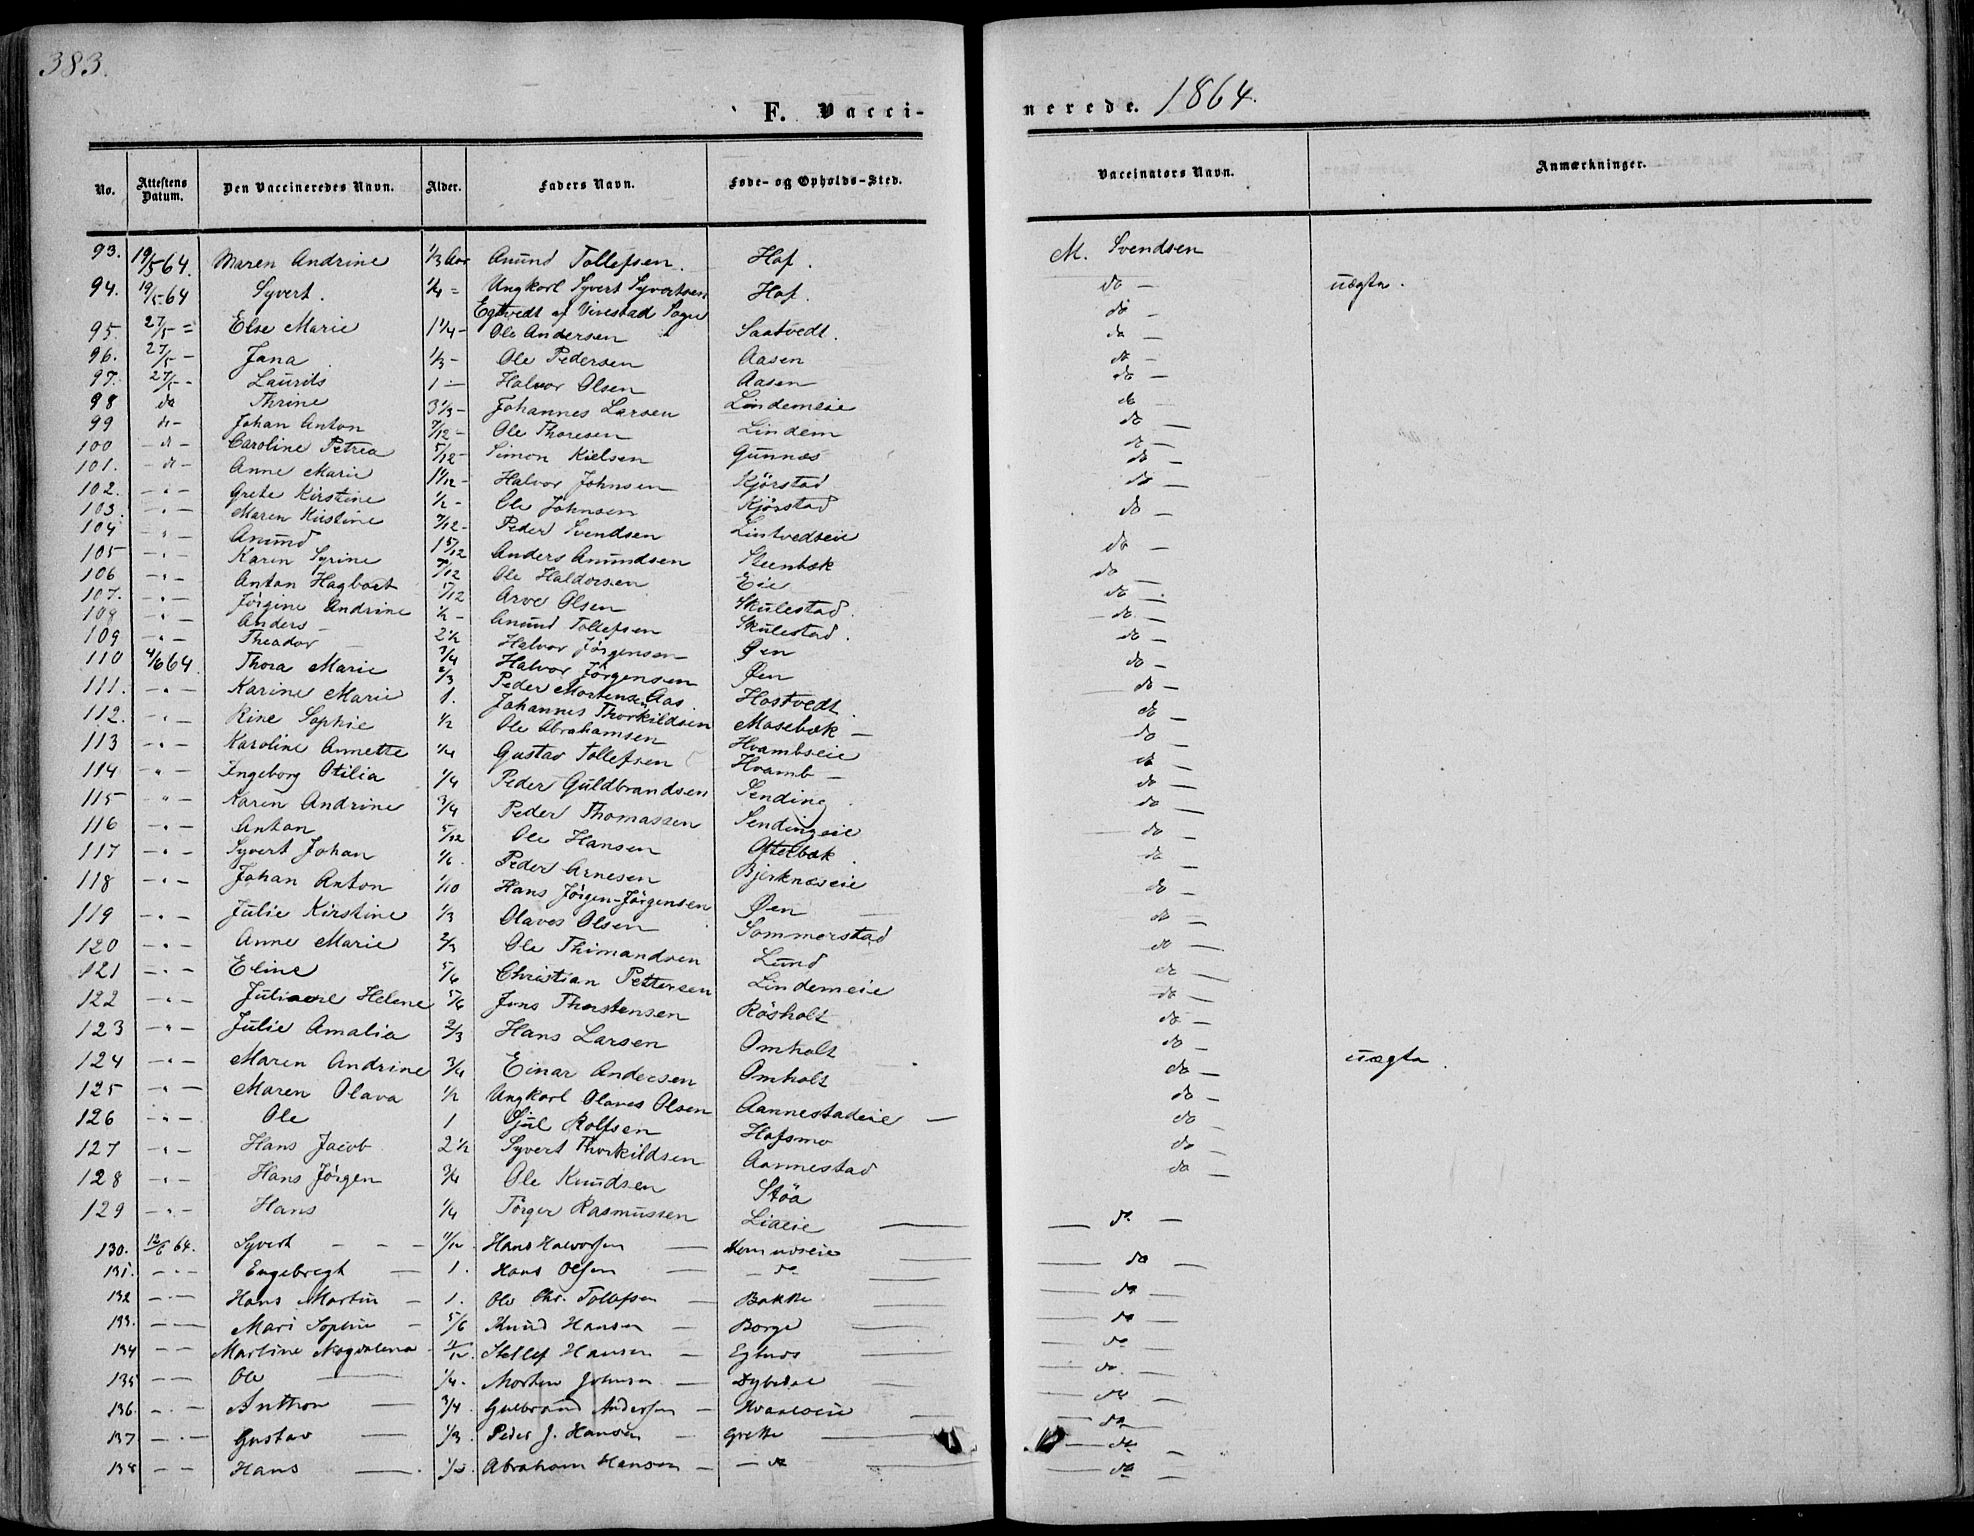 383.
F. Vacci-
nerede. 1864.
No. Attestens Datum. Den Vaccineredes Navn. Alder. Faders Navn. Føde- og Opholds-Sted. Vaccinators Navn. Anmærkninger.
93. 19/5 64. Maren Andrine 1/3 Aar Anund Tollefsen. Hof. M. Svendsen
94. 19/5 64 Syvert. 1/4 = Ungkarl Syvert Syvertsen Hof. do — uægta.
Egtvedt af Vivestad Sogn do —
95. 27/5 = Else Marie 1 1/4 — Ole Andersen Saatvedt. do —
96. 27/5 — Jana 1/3 — Ole Pedersen Aasen do —
97. 27/5 - Laurits 1 — Halvor Olsen Aasen do —
98 do Thrine 3 1/3 — Johannes Larsen Lindemeie do —
99 do - Johan Anton 7/12 — Ole Thoresen Lindem do —
100 — do — Caroline Petrea 5/12 — Simon Kielsen Gunnæs do —
101. — do — Anne Marie 11/12 — Halvor Johnsen Kjørstad do —
102. — " — Grete Kirstine 1/2 — Ole Johnsen Kjørstad do —
103. — " — Maren Kirstine 7/12 — Peder Svendsen Lintvedseie do —
104 — " — Anund 1 5/12 Anders Anundsen Steenbæk do —
105 — " — Karen Syrine 7/12 Ole Haldorsen Eie do —
106 — " — Anton Hagbart 5/12 Arve Olsen Skulestad. do —
107. — " — Jørgine Andrine 1/2 — Anund Tollefsen Skulestad. do —
108 — " — Anders — 2 1/2 Halvor Jørgensen Øen do —
109 — " — Theodor — 3/4 Halvor Jørgensen Øen do —
110 4/6 64. Thora Marie 2/3 Peder Mortens. Aas. Hostvedt. do —
111. — " — Karine Marie 1. Johannes Thorkildsen Masebæk — do —
112. — " — Rine Sophie 1/2 Ole Abrahamsen Hvambseie do —
113 — " — Karoline Annette 1/4 Gustav Tollefsen Hvamb — do —
114 — " — Ingeborg Otilia 1/4 Peder Guldbrandsen Sending. do —
115 — " — Karen Andrine 3/4 Peder Thomassen Sendingeie do —
116 — " — Anton 5/12 Ole Hansen Ottelbæk. do —
117 — " — Syvert Johan 1/6. Peder Arnesen Bjerknæseie do —
118 — " — Johan Anton 1/10 Hans Jørgen-Jørgensen Øen do —
119 — " — Julie Kirstine 1/3 Olaves Olsen Sommerstad do —
120 — " — Anne Marie 2/3 Ole Thimandsen Lund do —
121 — " — Eline 5/6 Christian Pettersen Lindemeie do —
122 — " — Juliane Helene 5/6 Jens Thorstensen Røsholt do —
123 — " — Julie Amalia 2/3 Hans Larsen Omholt do —
124 — " — Maren Andrine 3/4 Einar Andersen Omholt do —
125 — " — Maren Olava 1/2 Ungkarl Olaves Olsen Aannestadeie — do — uægta.
126 — " — Ole 1 Gjul Rolfsen Hofsmo do —
127 — " — Hans Jacob 2 1/2 Syvert Thorkildsen Aannestad do —
128 — " — Hans Jørgen 3/4 Ole Knudsen Støa do —
129 — " — Hans 1/4 Tørger Rasmussen Liaeie do —
130. 12/6 64. Syvert — — Hans Halvorsen — do —
131. — " — Engebregt — 1. Hans Olsen — do do —
132 — " — Hans Martin — 1. Ole Chr. Tollefsen — Bakke do —
133. — — Mari Sophie — 5/6 Knud Hansen — Borge do —
134 — — Martine Magdalena Stellef Hansen — do —
135 — — Ole — 1/4. Morten Johnsen — Dybedal do —
136. — " — Anthon — 3/4. Gulbrand Andersen — Hvaaleeie do —
137 — " — Gustav — 1/3. Peder J. Hansen — Grette do —
138 — — Hans — Abraham Hansen — do do —